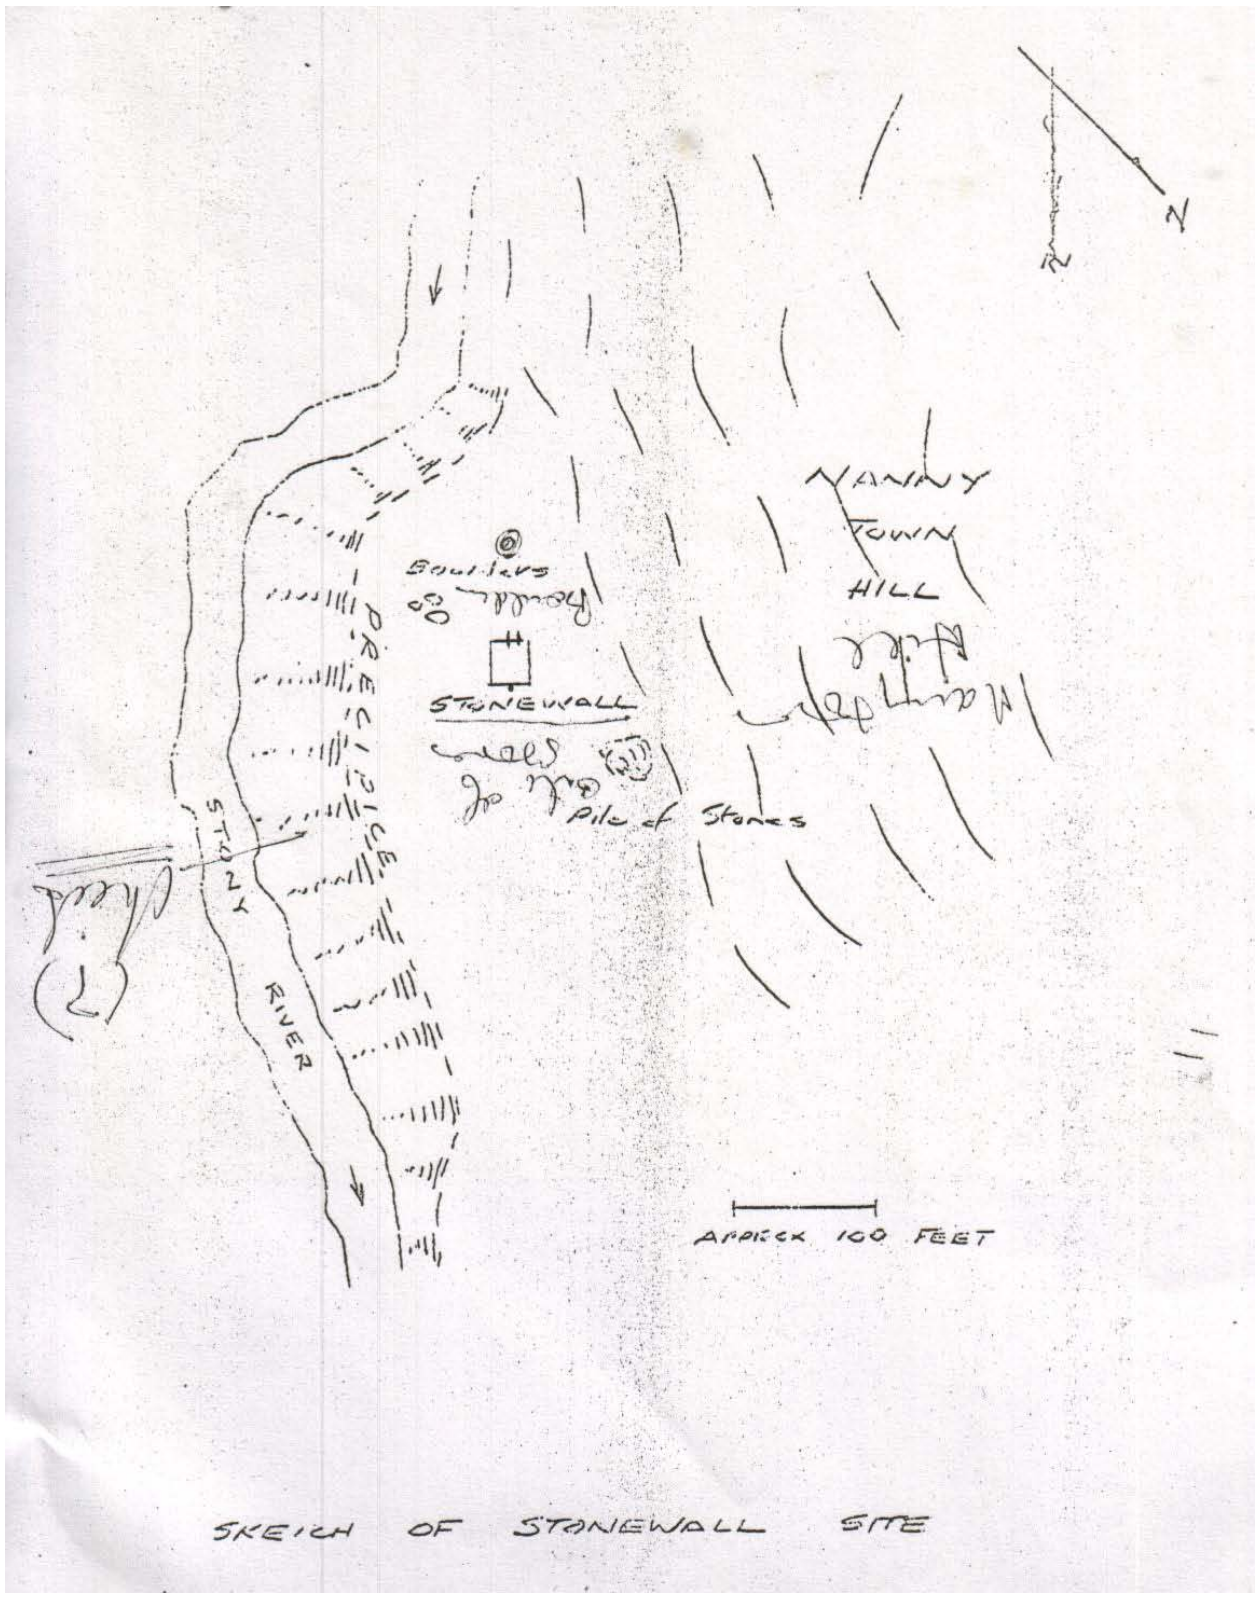 N
N
NANNY
TOWN
HILL
Boulders
Boulder
Hill
PRECIPICE
STONEWALL
Stones
Pile of Stones
STONY
RIVER
Check
(?)
11
APPROX 100 FEET
SKETCH OF STONEWALL SITE